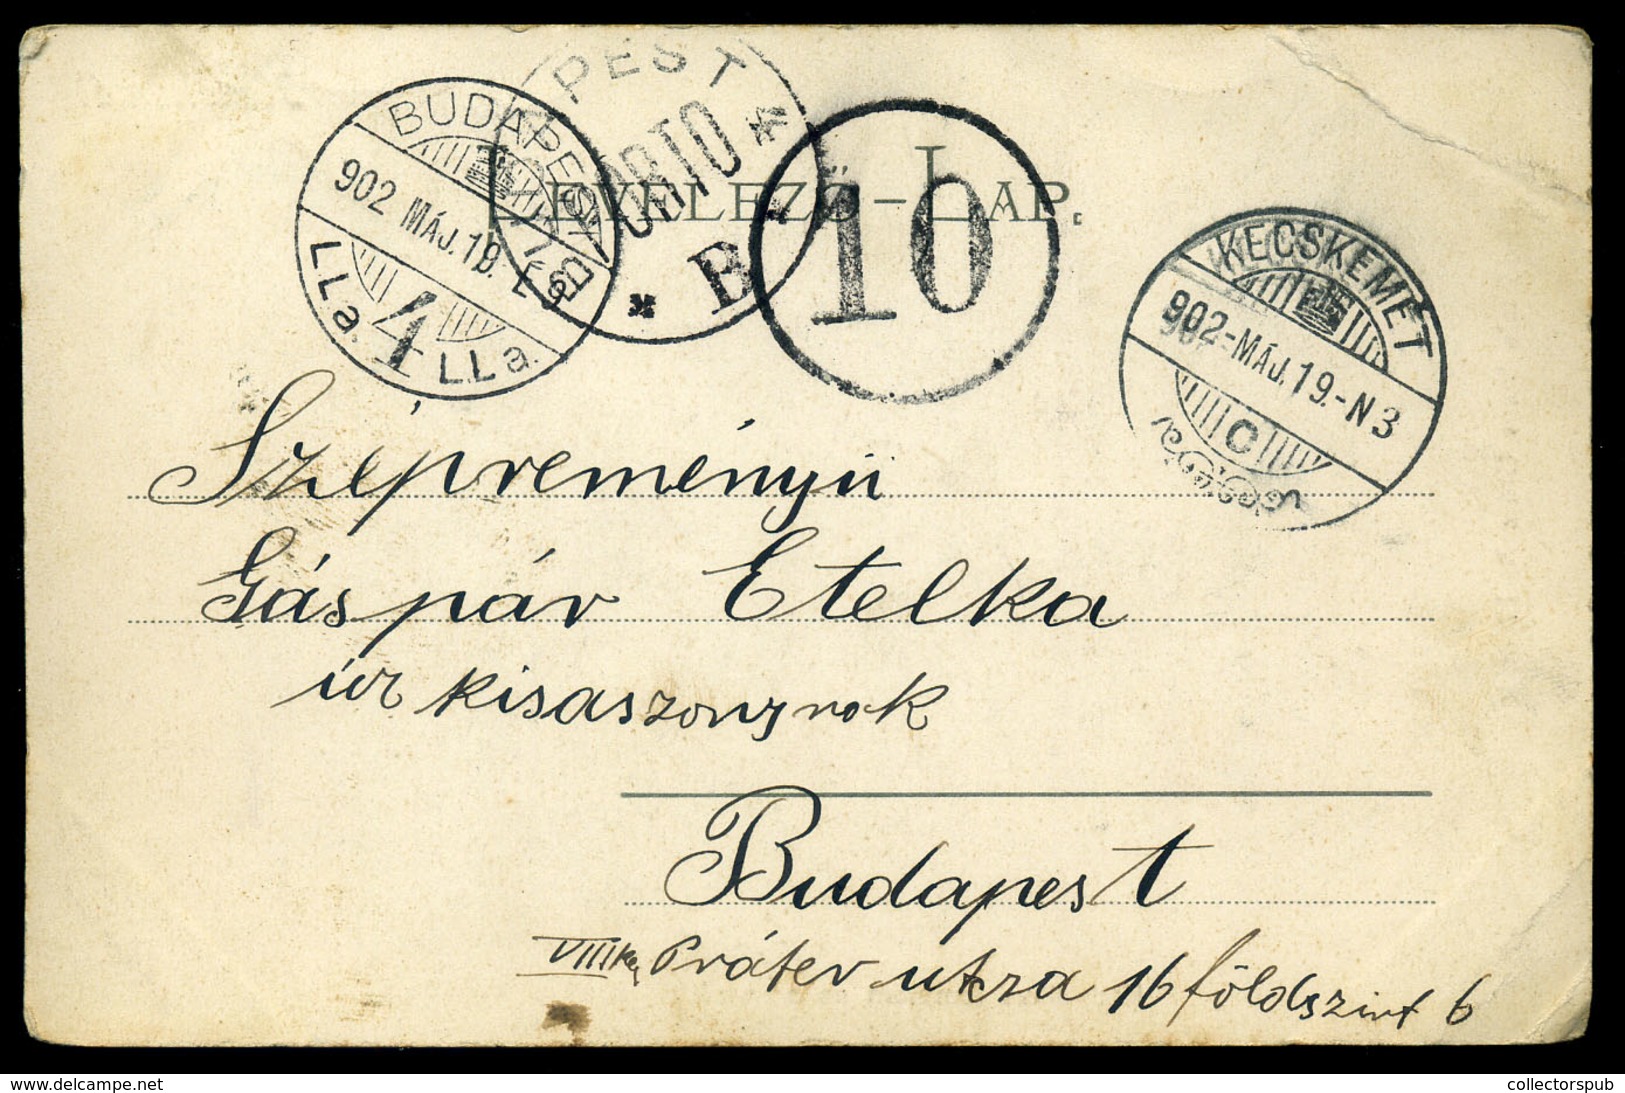 LEVELEZŐ-LAP.
BUDAPEST
902 MÁJ. 19. É9
4
LLa. LLa.
BUDAPEST
PORTO
* B *
10
KECSKEMÉT
902-MÁJ.19.-N3
C
Szépreményü
Gáspár Etelka
úr kisaszonynak
Budapest
VIII ker Práter utcza 16 földszint 6
www.delcampe.net
collectorspub